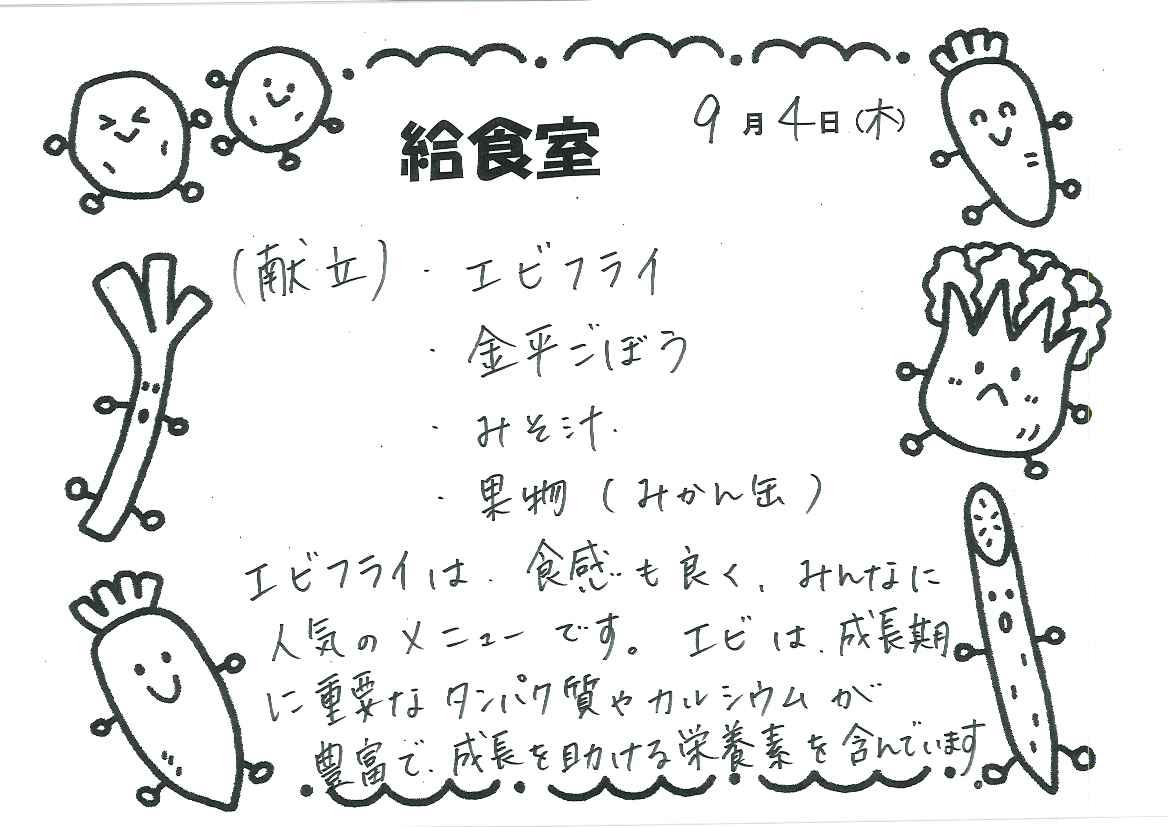 給食室
9月4日(木)
(献立)・エビフライ
・金平ごぼう
・みそ汁
・果物(みかん缶)
エビフライは、食感も良く、みんなに
人気のメニューです。エビは、成長期
に重要なタンパク質やカルシウムが
豊富で、成長を助ける栄養素を含んでいます。